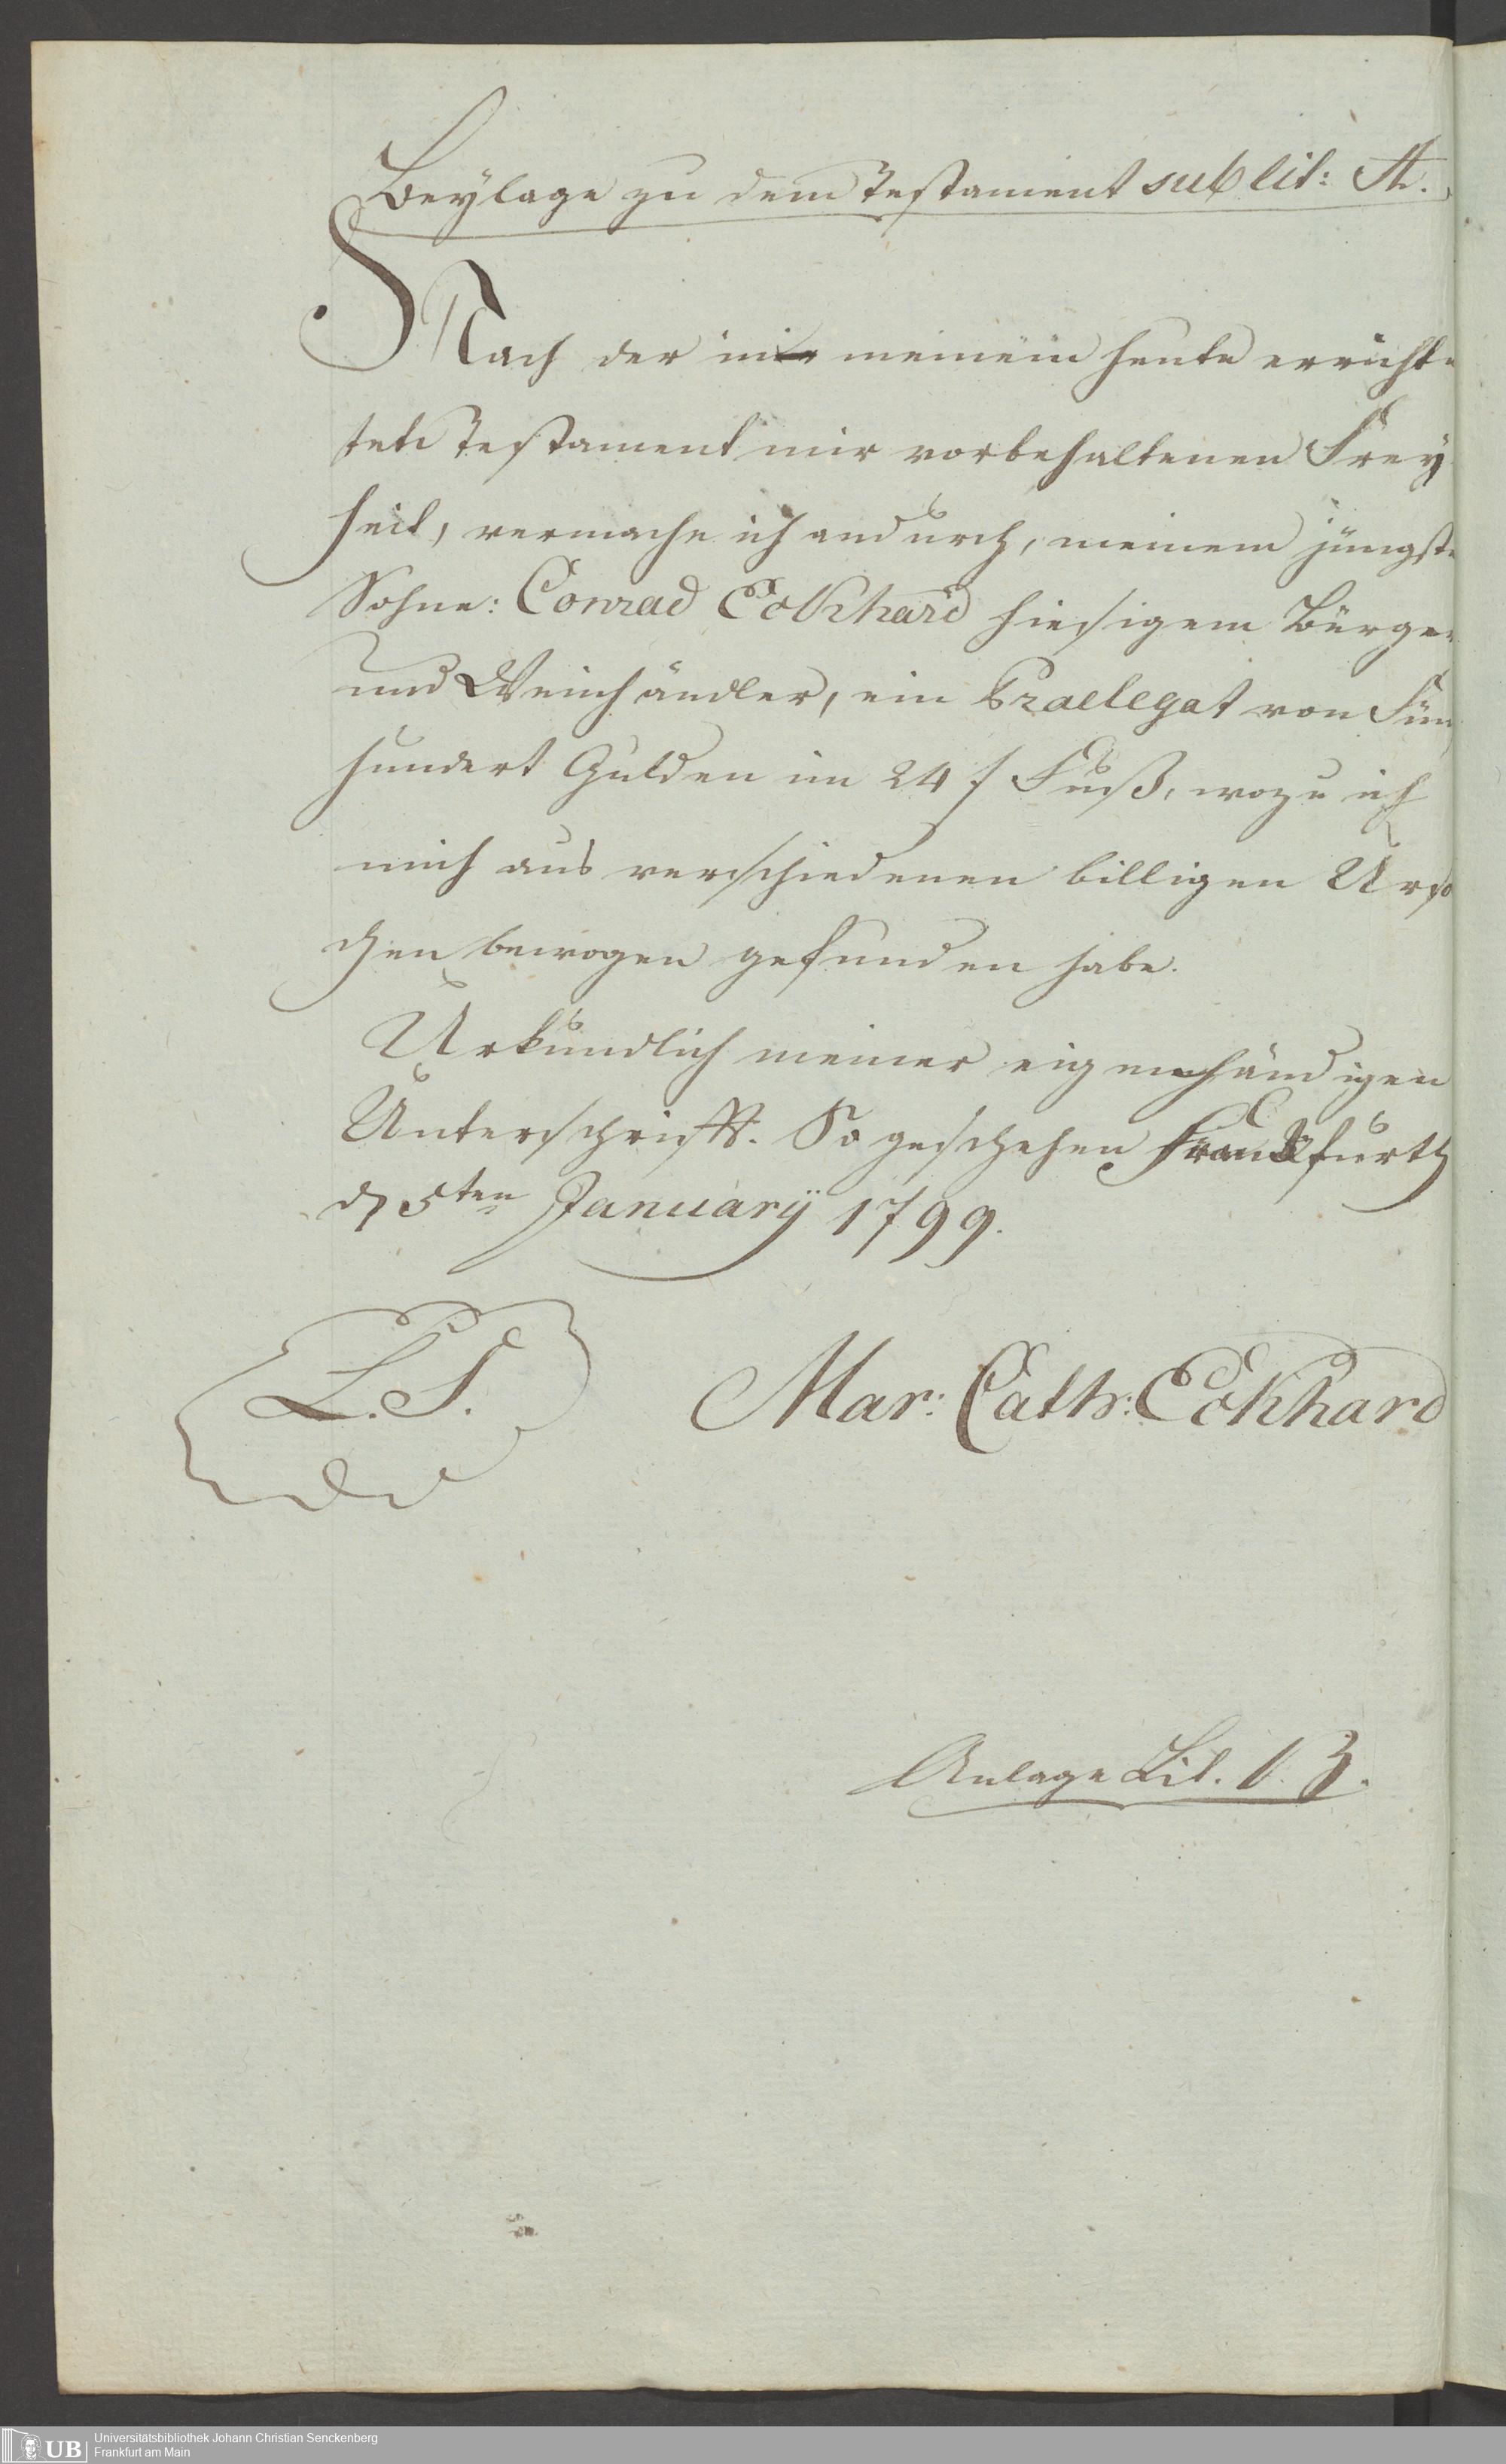 Beylage zu dem Testament sub lit: A.
Nach der in meinem heute errichte
ten Testament mir vorbehaltenen Frey
heit, vermache ich andurch, meinem jüngste
Sohne: Conrad Eckhard hiesigem Bürger
und Weinhändler, ein Praelegat von Fün
hundert Gulden im 24 f Fuß, wozu ich
mich aus verschiedenen billigen Ursa
chen bewogen gefunden habe.
Urkundlich meiner eigenhändigen
Unterschrifft. So geschehen Franckfurth
d 5ten January 1799.
L.S.
Mar: Cath: Eckhard
Anlage Lit. B.
UB
Universitätsbibliothek Johann Christian Senckenberg
Frankfurt am Main